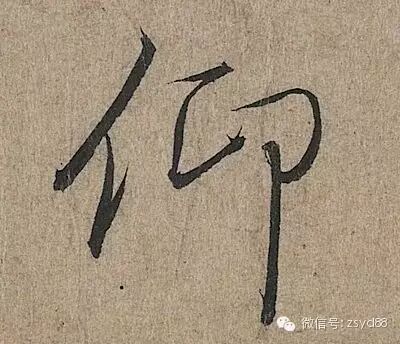 仰
微信号: zsyd88